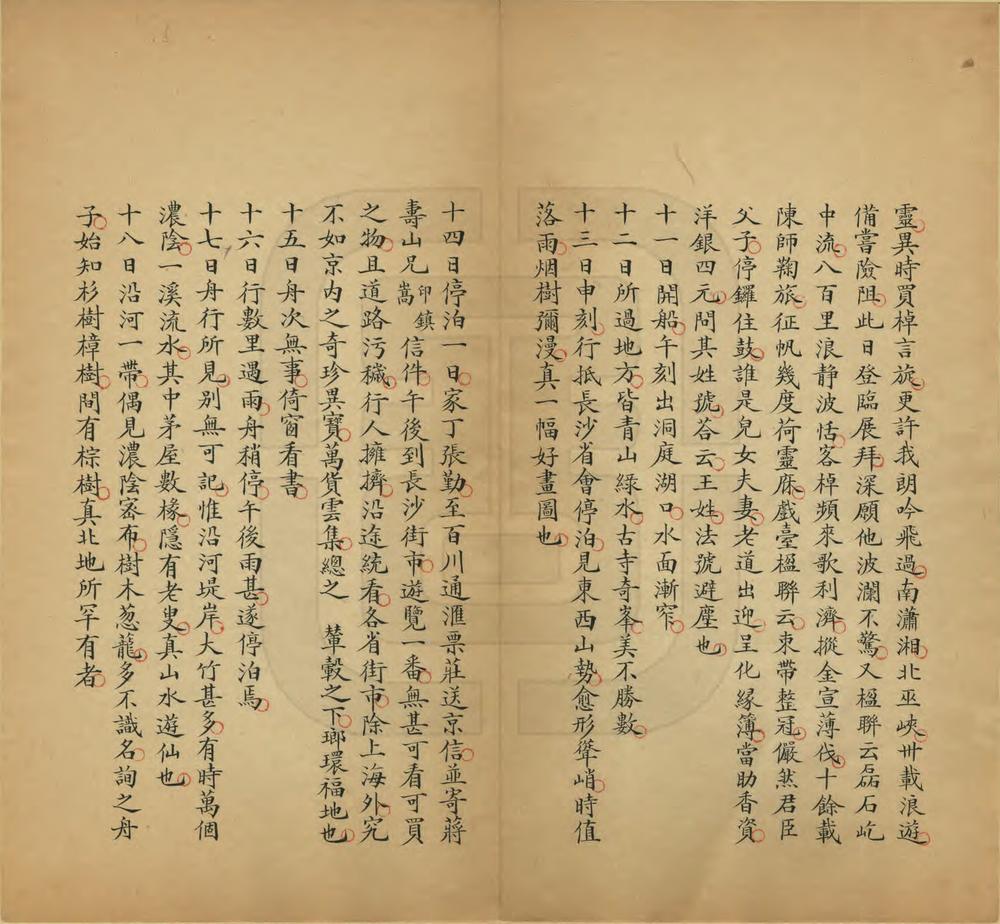 靈異時買棹言旋更許我朗吟飛過南瀟湘北巫峽卅載浪遊
備嘗險阻此日登臨展拜深願他波瀾不驚又楹聯云磊石屹
中流八百里浪静波恬客棹頻來歌利濟摐金宣薄伐十餘載
陳師鞠旅征帆幾度荷靈庥戲臺楹聯云束帶整冠儼然君臣
父子停鑼住鼓誰是兒女夫妻老道出迎呈化緣簿當助香資
洋銀四元問其姓號荅云王姓法號避塵也
十一日開船午刻出洞庭湖口水面漸窄
十二日所過地方皆青山綠水古寺奇峯美不勝數
十三日申刻行抵長沙省會停泊見東西山勢愈形聳峭時值
落雨烟樹彌漫真一幅好畫圖也
十四日停泊一日家丁張勤至百川通滙票莊送京信並寄蔣
壽山兄印嵩鎮信件午後到長沙街市遊覽一番無甚可看可買
之物且道路污穢行人擁擠沿途統看各省街市除上海外究
不如京内之奇珍異寶萬貨雲集總之 輦轂之下瑯環福地也
十五日舟次無事倚窗看書
十六日行數里遇雨舟稍停午後雨甚遂停泊焉
十七日舟行所見别無可記惟沿河堤岸大竹甚多有時萬個
濃陰一溪流水其中茅屋數椽隱有老叟真山水遊仙也
十八日沿河一帶偶見濃陰密布樹木葱蘢多不識名詢之舟
子始知杉樹樟樹間有棕樹真北地所罕有者